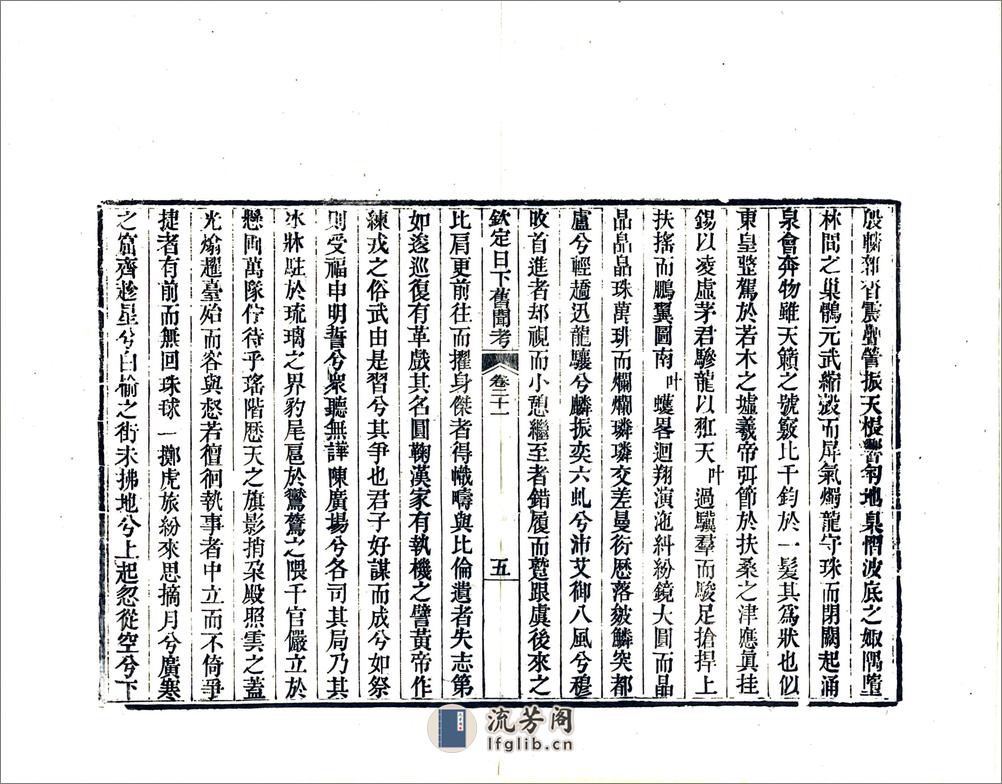 殷轔郭沓震疊管振天根響匉地臬慴波底之娵隅墮
林間之巢鶻元武縮殼而屏氣燭龍守珠而閉闕起涌
泉會奔物雖天籟之號竅比千鈞於一髮其爲狀也似
東皇整駕於若木之墟羲帝弭節於扶桑之津應眞挂
錫以凌虛茅君驂龍以狃天叶過驥羣而駿足搶捍上
扶搖而鵬翼圖南叶蠖畧迴翔演迤糾紛鏡大圓而晶
晶晶晶珠萬琲而爛爛璘璘交差曼衍歷落皴鱗突都
盧兮輕趫迅龍驤兮麟振奕六虬兮沛艾御八風兮穆
皎首進者却視而小憩繼至者錯履而蹔跟虞後來之
欽定日下舊聞考 卷二十一 五
比肩更前往而擢身傑者得幟疇與比倫遺者失志第
如逡巡復有革戲其名圓鞠漢家有執機之譬黃帝作
練戎之俗武由是習兮其爭也君子好謀而成兮如祭
則受福申明誓兮衆聽無譁陳廣場兮各司其局乃其
冰牀駐於琉璃之界豹尾扈於鸞鷘之隈千官儼立於
懸圃萬隊佇待乎瑤階歴天之旗影捎朶殿照雲之蓋
光煸趯臺殆而容與愸若徸徊執事者中立而不倚爭
捷者有前而無回珠球一擲虎旅紛來思摘月兮廣寒
之窟齊趁星兮白榆之街未拂地兮上起忽從空兮下
流芳阁
lfglib.cn